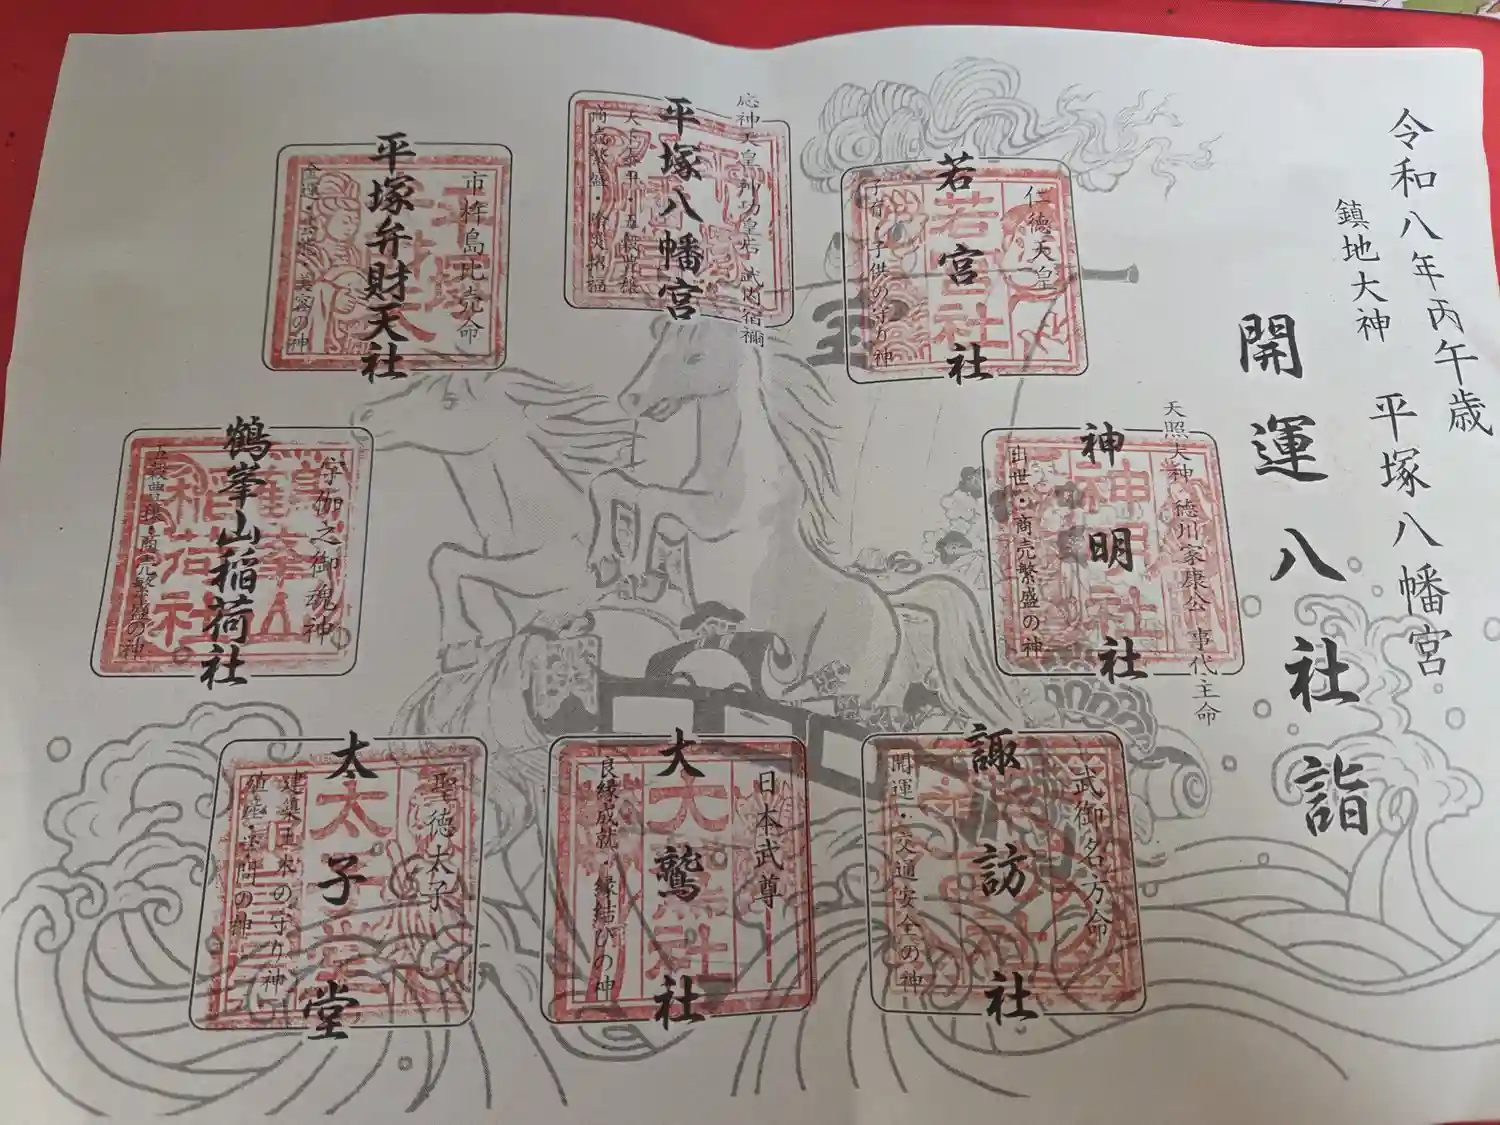 令和八年丙午歳
鎮地大神 平塚八幡宮
開運八社詣
仁徳天皇
若宮社
子育・子供の守り神
応神天皇 神功皇后 武内宿禰
平塚八幡宮
天下泰平・五穀豊穣
商売繁盛・除災招福
市杵島比売命
平塚弁財天社
金運・芸能・美容の神
天照大神 徳川家康公 事代主命
神明社
出世・商売繁盛の神
宇伽之御魂神
鶴峯山稲荷社
五穀豊穣・商売繁盛の神
武御名方命
諏訪社
開運・交通安全の神
日本武尊
大鷲社
良縁成就・縁結びの神
聖徳太子
太子堂
建築土木の守り神
殖産・学問の神
宝